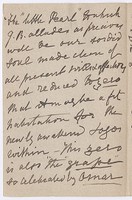 "the little Pearl" to which
J.B. alludes as precious
will be our sordid
soul made clean of
all present
and reduced to zero
But how be a fit
habitation for the
newly awakened Logos
within - This zero
is also "the grape"
so celebrated by Omar